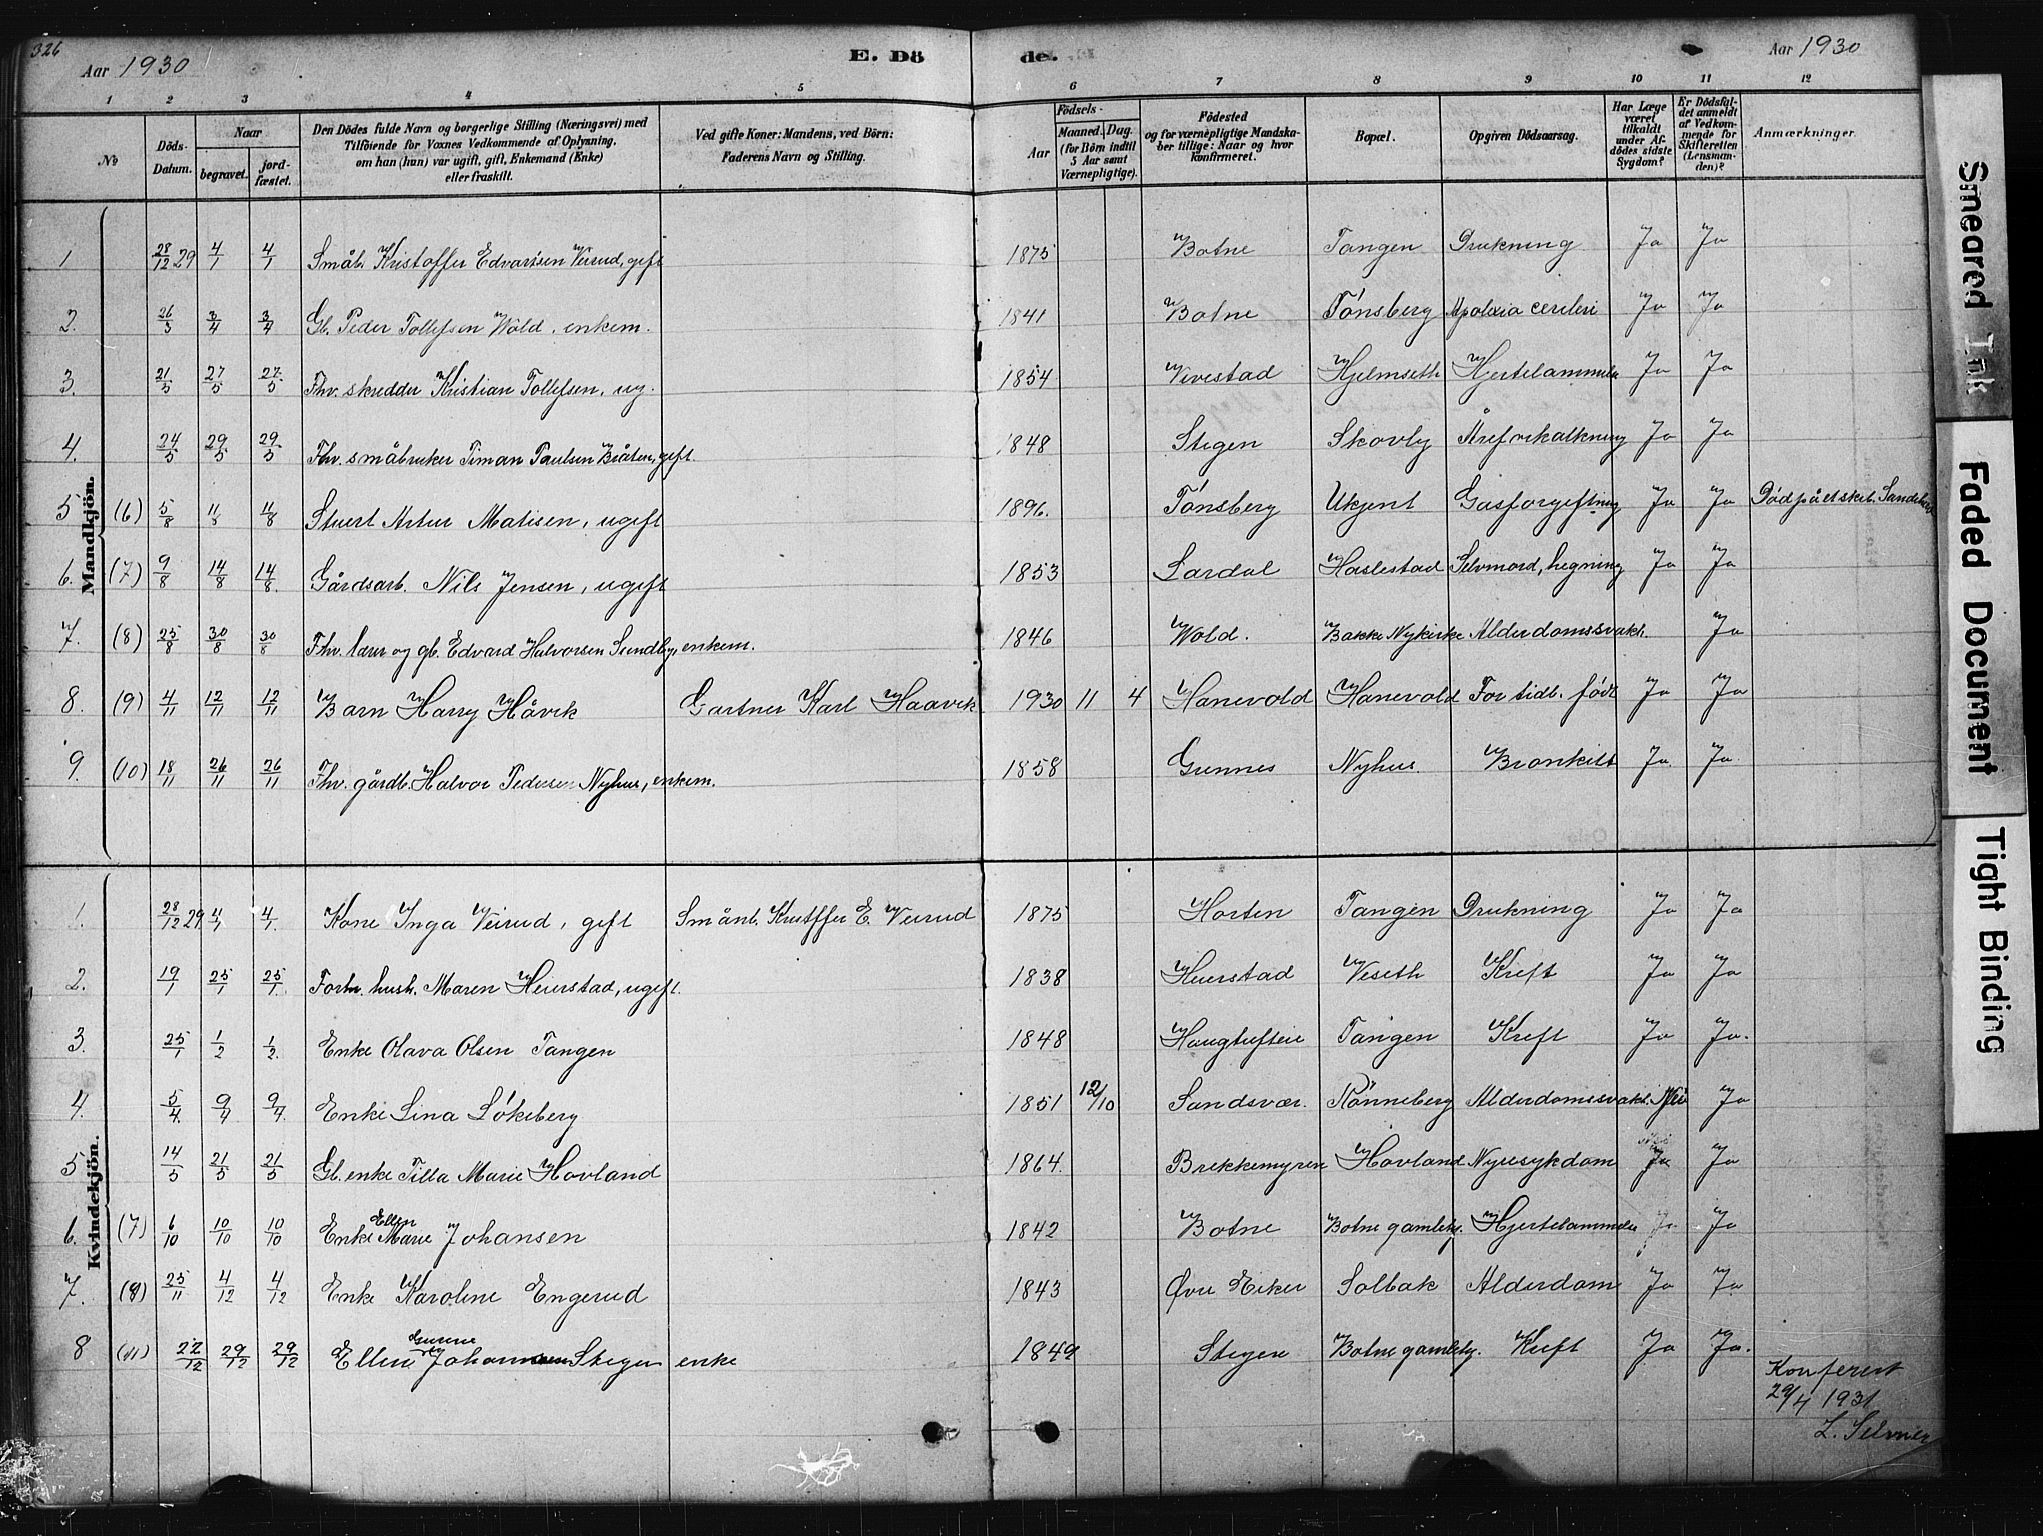 326
Aar 1930
E. Dö
de.
Aar 1930
1 2 3 4 5 6 7 8 9 10 11 12
No
Döds-Datum.
Naar
begravet.
jord-fæstet.
Den Dödes fulde Navn og borgerlige Stilling (Næringsvei) med
Tilföiende for Voxnes Vedkommende af Oplysning,
om han (hun) var ugift, gift, Enkemand (Enke)
eller fraskilt.
Ved gifte Koner: Mandens, ved Börn:
Faderens Navn og Stilling.
Födsels-
Aar
Maaned. Dag.
(for Börn indtil
5 Aar samt
Værnepligtige).
Födested
og for værnepligtige Mandska-
ber tillige: Naar og hvor
konfirmeret.
Bopæl.
Opgiven Dödsaarsag.
Har Læge
været
tilkaldt
under Af-
dödes sidste
Sygdom?
Er Dödsfal-
det anmeldt
af Vedkom-
mende for
Skifteretten
(Lensman-
den)?
Anmærkninger.
Mandkjön.
1 28/12 29 4/1 4/1 Småb. Kristoffer Edvartsen Veirud, gift 1875 Botne Tangen Drukning Ja Ja
2. 26/3 3/4 3/4 Gb. Peder Tollefsen Wold, enkem. 1841 Botne Tönsberg Apolexia cereberi Ja Ja
3. 21/5 27/5 27/5 Fhv. skredder Kristian Tollefsen, ug. 1854 Vivestad Hjelmseth Hjertelammelse Ja Ja
4. 24/5 29/5 29/5 Fhv. småbruker Timan Paulsen Bråten, gift 1848 Stigen Skovly Åreforkalkning Ja Ja
5 (6) 5/8 11/8 11/8 Stuert Artur Matisen, ugift 1896. Tönsberg Ukjent Gasforgiftning Ja Ja Död på et skib.
6. (7) 9/8 14/8 14/8. Gårdsarb. Nils Jensen, ugift 1853 Lardal Haslestad Selvmord, hegning Ja Ja
7. (8) 25/8 30/8 30/8 Fhv. lærer og gb. Edvard Halvorsen Sundby, enkem. 1846 Wold. Bakke Nykirke Alderdomssvakh. Ja
8. (9) 4/11 12/11 12/11 Barn Harry Håvik Gartner Karl Haavik 1930 11 4 Hanevold Hanevold For tidl. födt Ja Ja
9. (10) 18/11 26/11 26/11 Fhv. gårdb. Halvor Pedersen Nyhus, enkem. 1858 Gunnes Nyhus. Bronkitt Ja Ja
Kvindekjön.
1. 28/12 29 4/1 4/1 Kone Inga Veirud, gift Småbr. Kristffer E. Veirud 1875 Horten Tangen Drukning Ja Ja
2. 19/1 25/1 25/1 Forhv. hush. Maren Heierstad, ugift 1838 Heierstad Veseth Kreft Ja Ja
3. 25/1 1/2 1/2. Enke Olava Olsen Tangen 1848 Haugtufteie Tangen Kreft Ja Ja.
4. 5/4 9/4 9/4 Enke Lina Lökeberg 1851 12/10 Sandsvær. Rönneberg Alderdomssvakh. Nei Ja
5 14/5 21/5 21/5 Gb. enke Tilla Marie Hovland 1864. Brekkemyren Hovland Nyresykdom Ja Ja
6. (7) 6/10 10/10 10/10 Enke Ellen Marie Johansen 1842 Botne Botne gamleh. Hjertelammelse Ja Ja
7. (9) 25/11 4/12 4/12 Enke Karoline Engerud 1843 Övre Eiker Solbak Alderdom Ja Ja
8 (11) 22/12 29/12 29/12 Ellen Johannsen Stigen enke 1849 Stigen Botne gamlehj. Kreft Ja Ja.
Konferert
29/4 1931
L. Selmer
Smeared Ink
Faded Document
Tight Binding